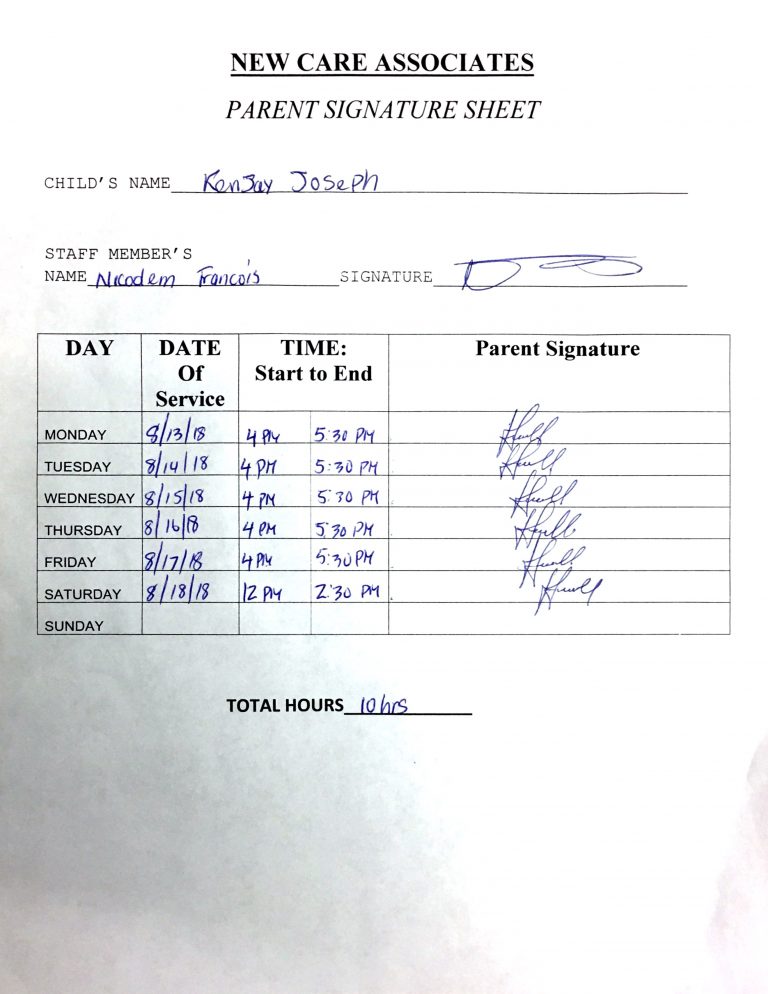 NEW CARE ASSOCIATES
PARENT SIGNATURE SHEET
CHILD'S NAME KenJay Joseph
STAFF MEMBER'S
NAME Nicodem Francois SIGNATURE
DAY DATE TIME: Parent Signature
Of Start to End
Service
MONDAY 8/13/18 4 PM 5:30 PM
TUESDAY 8/14/18 4 PM 5:30 PM
WEDNESDAY 8/15/18 4 PM 5:30 PM
THURSDAY 8/16/18 4 PM 5:30 PM
FRIDAY 8/17/18 4 PM 5:30 PM
SATURDAY 8/18/18 12 PM 2:30 PM
SUNDAY
TOTAL HOURS 10 hrs